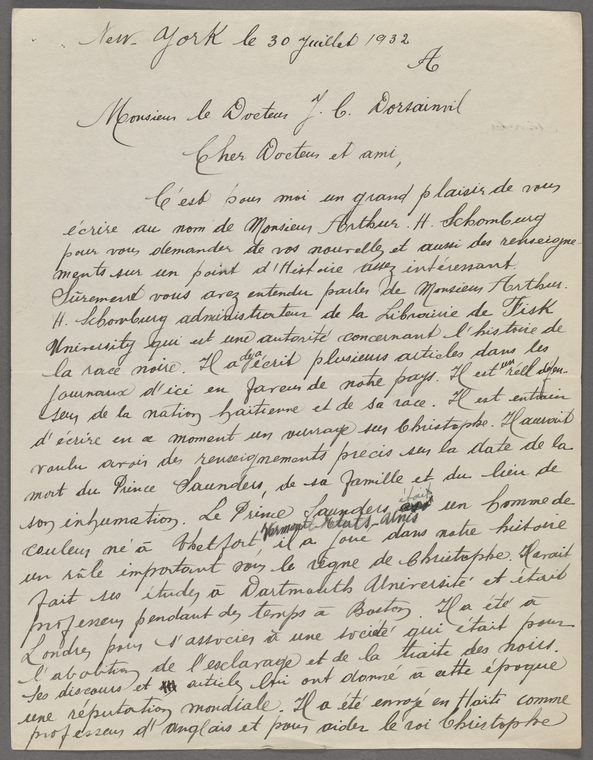 New-York le 30 juillet 1932
A
Monsieur le Docteur J. C. Dorsainvil
Cher Docteur et ami,
C'est pour moi un grand plaisir de vous
écrire au nom de Monsieur Arthur. H. Schomburg
pour vous demander de vos nouvelles et aussi des renseigne-
ments sur un point d'Histoire assez intéressant.
Sûrement vous avez entendu parler de Monsieur Arthur.
H. Schomburg administrateur de la Librairie de Fisk
University qui est une autorité concernant l'histoire de
la race noire. Il a déja écrit plusieurs articles dans les
journaux d'ici en faveur de notre pays. Il est un réel défen-
seur de la nation haïtienne et de sa race. Il est entrain
d'écrire en ce moment un ouvrage sur Christophe. Il aurait
voulu avoir des renseignements précis sur la date de la
mort du Prince Saunders, de sa famille et du lieu de
son inhumation. Le Prince Saunders était un homme de
couleur né à Thetfort, Vermont - Etats-Unis il a joué dans notre histoire
un rôle important sous le règne de Christophe. Il avait
fait ses études à Dartmouth Université et était
professeur pendant des temps à Boston. Il a été à
Londres pour s'associer à une société qui était pour
l'abolition de l'esclavage et de la traite des noirs.
Ses discours et articles lui ont donné à cette époque
une réputation mondiale. Il a été envoyé en Haïti comme
professeur d'anglais et pour aider le roi Christophe